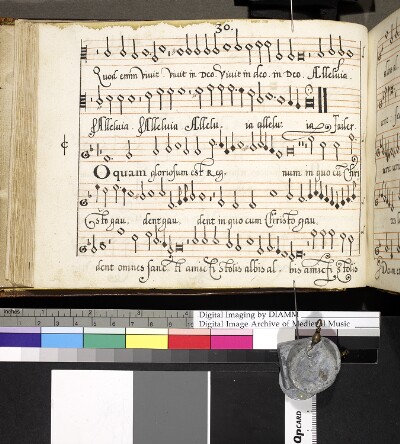 30.
Quod enim vivit vivit in Deo. Vivit in deo. in Deo. Alleluia.
Alleluia. Alleluia Allelu. ia allelu. ia
O quam gloriosum est Reg. num in quo cu Chri
sto gau. dent gau. dent in quo cum Christo gau.
dent omnes sanc. ti amicti stolis albis al. bis amicti stolis
inches
Digital Imaging by DIAMM
Digital Image Archive of Medieval Music
QpCARD